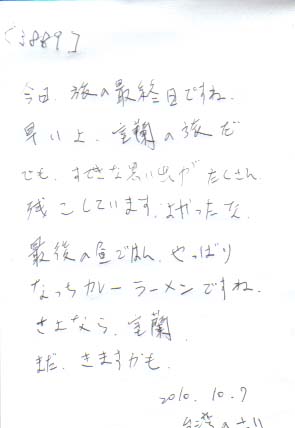 [3889]
今日、旅の最終日ですね。
早いよ、室蘭の旅だ
でも、すてきな思い出がたくさん
残こしています。よかったな。
最後の昼ごはん、やっぱり
なっちカレーラーメンですね。
さよなら、室蘭。
まだ、きますかも。
2010. 10. 7
台湾の